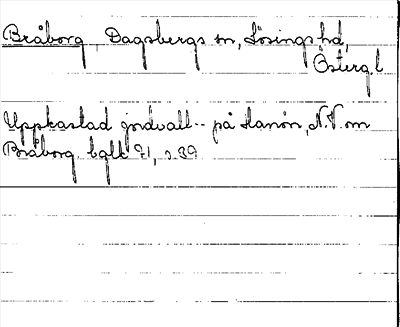 Bråborg, Dagsbergs sn, Lösings hd,
Östergl
Uppkastad jordvall -- på Hanön, N.V. om
Bråborg. bglt 91, s. 39